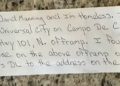 David Manning and Im Homeless.
Universal City on Campo De C
Hwy 101, N. offramp, I foun
se on the above offramp a
s DL to the address on the